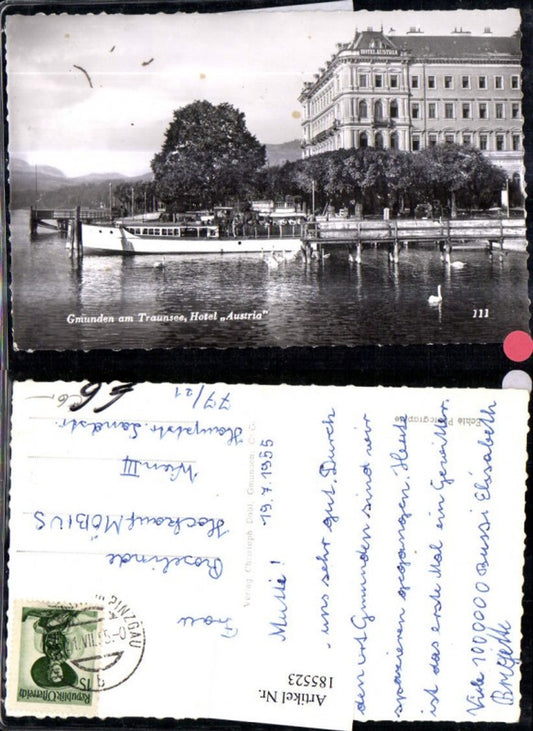 HOTEL AUSTRIA
Gmunden am Traunsee, Hotel „Austria"
111
Echte Photographie
Verlag Christoph Döbl, Gmunden
19.7.1955
Mutti!
uns sehr gut. Durch
den Ort Gmunden sind wir
spazieren gegangen. Heute
ist das erste Mal ein Gewitter.
Viele 1000000 Bussi Elisabeth
Brigitte
Frau
Roselinde
Hockauf-MÖBIUS
Wien III
Hauptstr. Landstr.
77/21
Republik Österreich
1 S
Artikel Nr.
185523